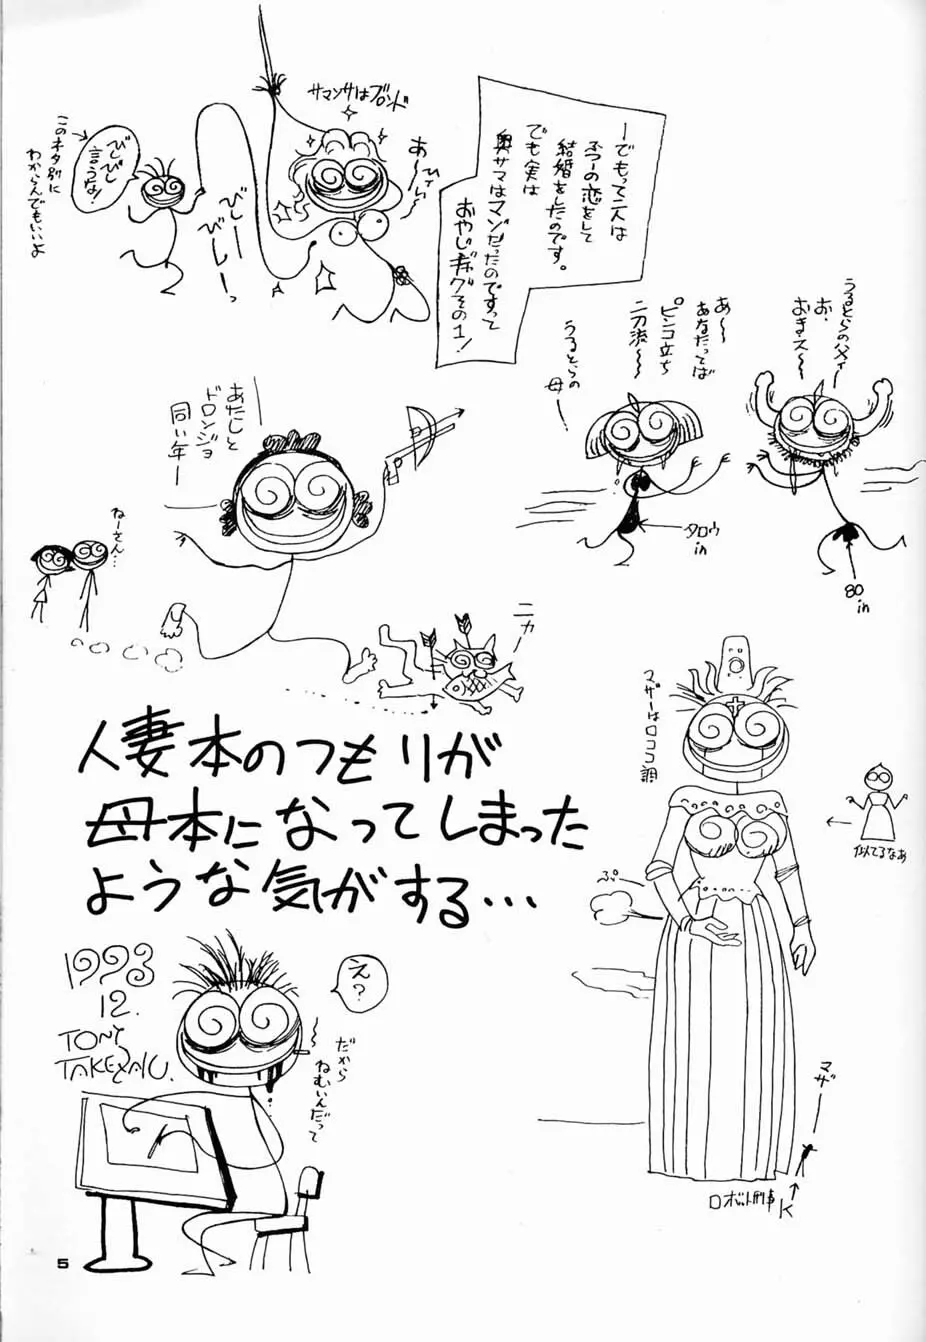 ーでもって二人は
フツーの恋をして
結婚をしたのです。
でも実は
奥サマはマゾだったのですって
おやじギャグその1!
サマンサはブロンド
あ〜
ひィ〜
びしー
びしーっ
びしびし
言うな!
このネタ別に
わからんでもいいよ
うるとらの父ィ
お、
おきス〜
あ〜
あなたってば
ピンコ立ち
二刀流〜
うるとらの
母ー
タロウ
in
80
in
あたしと
ドロンジョ
同い年ー
ねーさん…
ニカ
人妻本のつもりが
母本になってしまった
ような気がする…
マザーはロココ調
似てるなあ
ぷー
マザー
ロボット刑事K
1993
12.
TONY
TAKEZAKI.
え?
だから
ねむいんだって
5